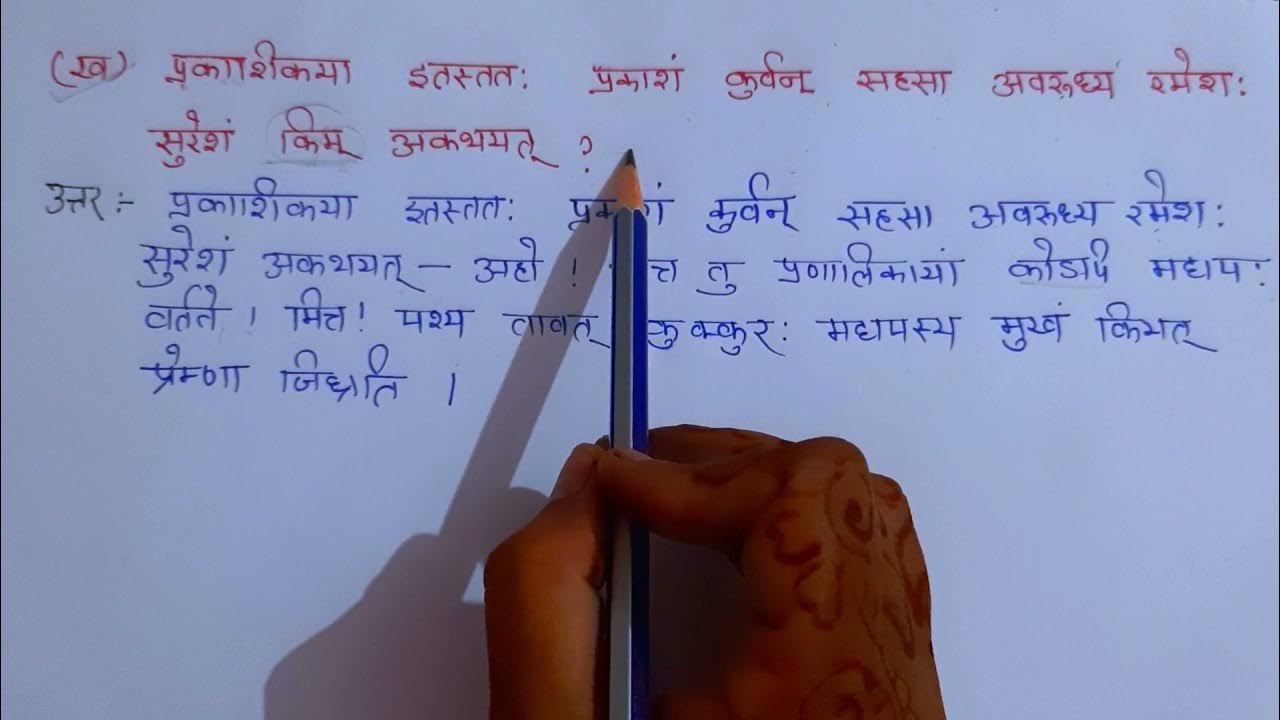 (ख) प्रकाशिकया इतस्ततः प्रकाशं कुर्वन् सहसा अवरूध्य रमेशः
सुरेशं किम् अकथयत् ?
उत्तर :- प्रकाशिकया इतस्ततः कुर्वन् सहसा अवरूध्य रमेशः
सुरेशं अकथयत् – अहो ! तु प्रणालिकायां कोडपि मद्यपः
वर्तते । मित्र ! पश्य तावत् कुक्कुरः मद्यपस्य मुखं कियत्
प्रेम्णा जिघ्रति ।